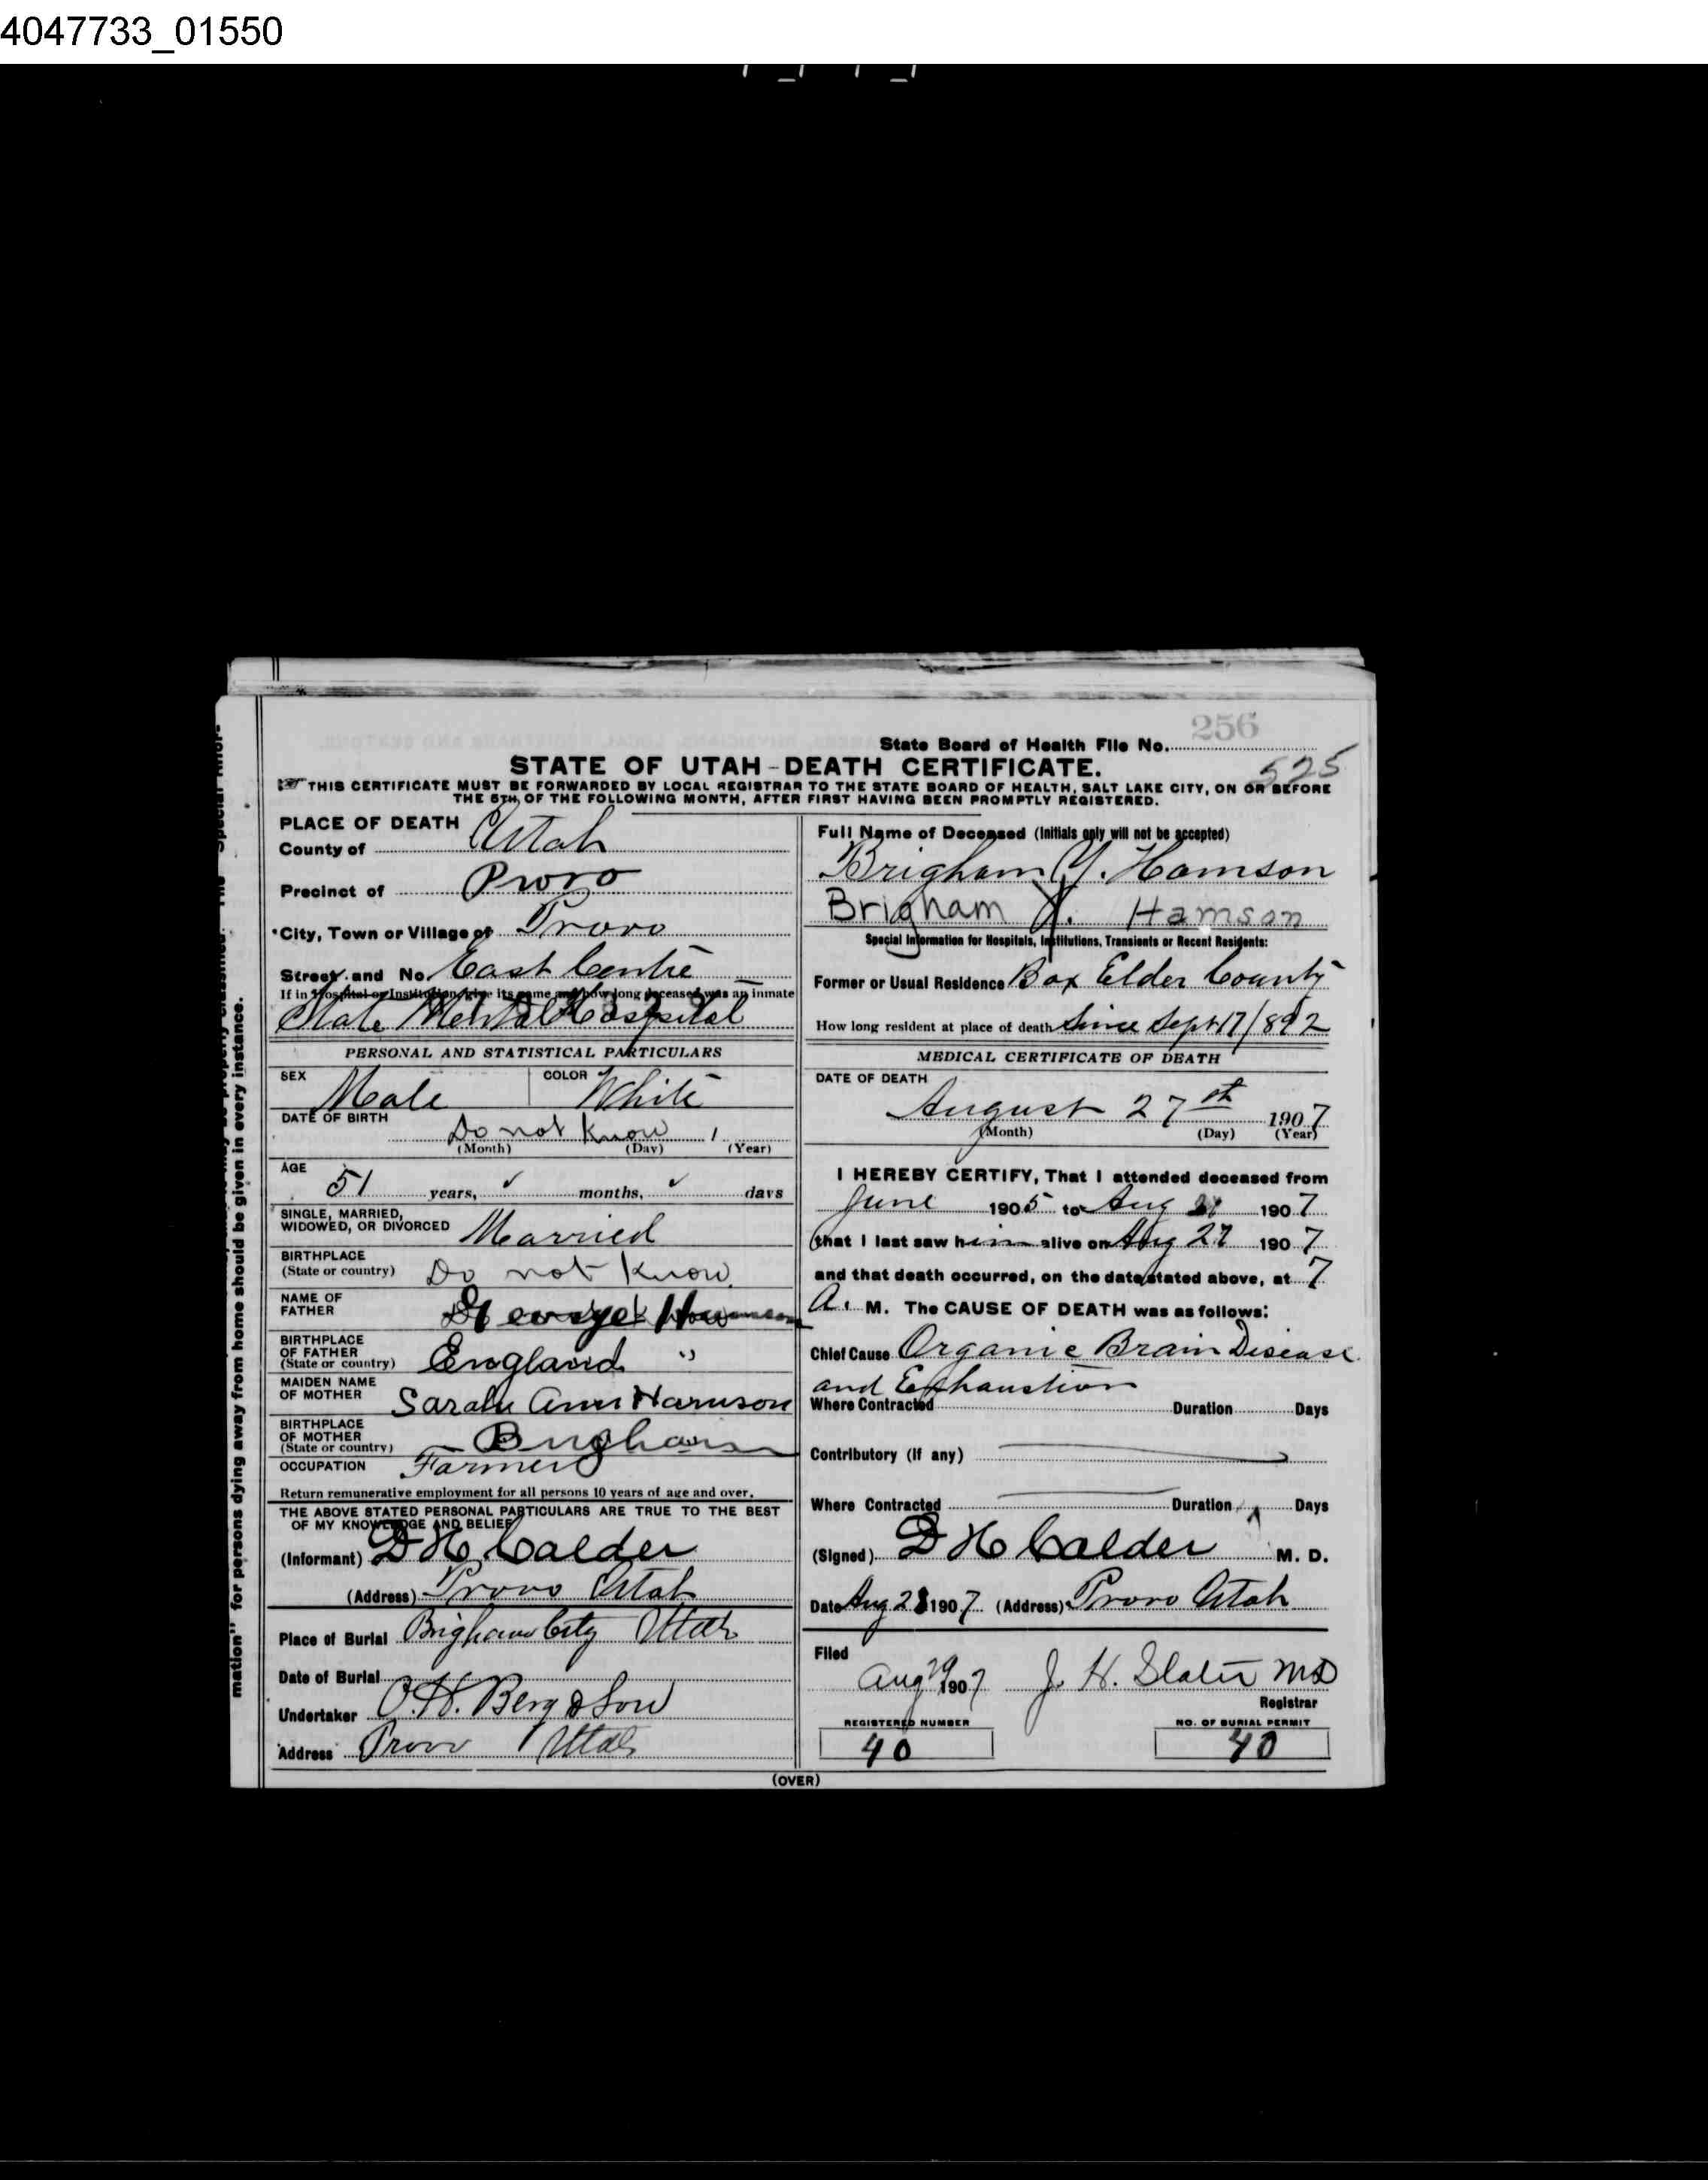 4047733_01550
256
State Board of Health File No.
STATE OF UTAH-DEATH CERTIFICATE.
525
THIS CERTIFICATE MUST BE FORWARDED BY LOCAL REGISTRAR TO THE STATE BOARD OF HEALTH, SALT LAKE CITY, ON OR BEFORE
THE 5TH OF THE FOLLOWING MONTH, AFTER FIRST HAVING BEEN PROMPTLY REGISTERED.
mation" for persons dying away from home should be given in every instance.
PLACE OF DEATH
County of Utah
Precinct of Provo
City, Town or Village of Provo
Street and No. East Centre
If in Hospital or Institution, give its name and how long deceased was an inmate
State Mental Hospital
PERSONAL AND STATISTICAL PARTICULARS
SEX Male COLOR White
DATE OF BIRTH
Do not Know 1
(Month) (Day) (Year)
AGE
51 years, ✓ months, ✓ days
SINGLE, MARRIED,
WIDOWED, OR DIVORCED Married
BIRTHPLACE
(State or country) Do not Know.
NAME OF
FATHER George
BIRTHPLACE
OF FATHER
(State or country) England "
MAIDEN NAME
OF MOTHER Sarah Ann
BIRTHPLACE
OF MOTHER
(State or country) Brigham
OCCUPATION Farmer
Return remunerative employment for all persons 10 years of age and over.
THE ABOVE STATED PERSONAL PARTICULARS ARE TRUE TO THE BEST
OF MY KNOWLEDGE AND BELIEF
(Informant) D H Calder
(Address) Provo Utah
Place of Burial Brigham City Utah
Date of Burial
Undertaker O. H. Berg & Son
Address Provo Utah
Full Name of Deceased (Initials only will not be accepted)
Brigham Y. Hamson
Brigham Y. Hamson
Special Information for Hospitals, Institutions, Transients or Recent Residents:
Former or Usual Residence Box Elder County
How long resident at place of death Since Sept 17/892
MEDICAL CERTIFICATE OF DEATH
DATE OF DEATH
August 27th 1907
(Month) (Day) (Year)
I HEREBY CERTIFY, That I attended deceased from
June 1905 to Aug 1907
that I last saw him alive on Aug 27 1907
and that death occurred, on the date stated above, at 7
A. M. The CAUSE OF DEATH was as follows:
Chief Cause Organic Brain Disease
and Exhaustion
Where Contracted Duration Days
Contributory (If any)
Where Contracted Duration Days
(Signed) D H Calder M. D.
Date Aug 28 1907 (Address) Provo Utah
Filed
Aug 29 1907 J. H. Slater MD
Registrar
REGISTERED NUMBER
40
NO. OF BURIAL PERMIT
40
(OVER)